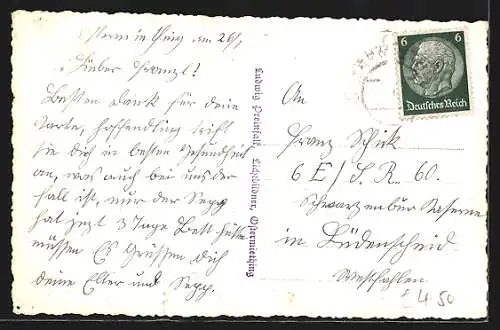 am 26/1
Lieber Franzl!
Besten Dank für deine
Karte, hoffendlich trifft
sie Dich in besten Gesundheit
an, was auch bei uns der
Fall ist, nur der Sepp
hat jezt 3 Tage Bett hüten
müssen Es Grüssen Dich
deine Elter und Sepp.
Ludwig Preinfalk, Lichtbildner, Ostermiething
6
6
Deutsches Reich
An
Franz Schick
6 E/J. R. 60.
Schwarzenbur Kaserne
in Lüdenscheid
Westfahlen
4 50